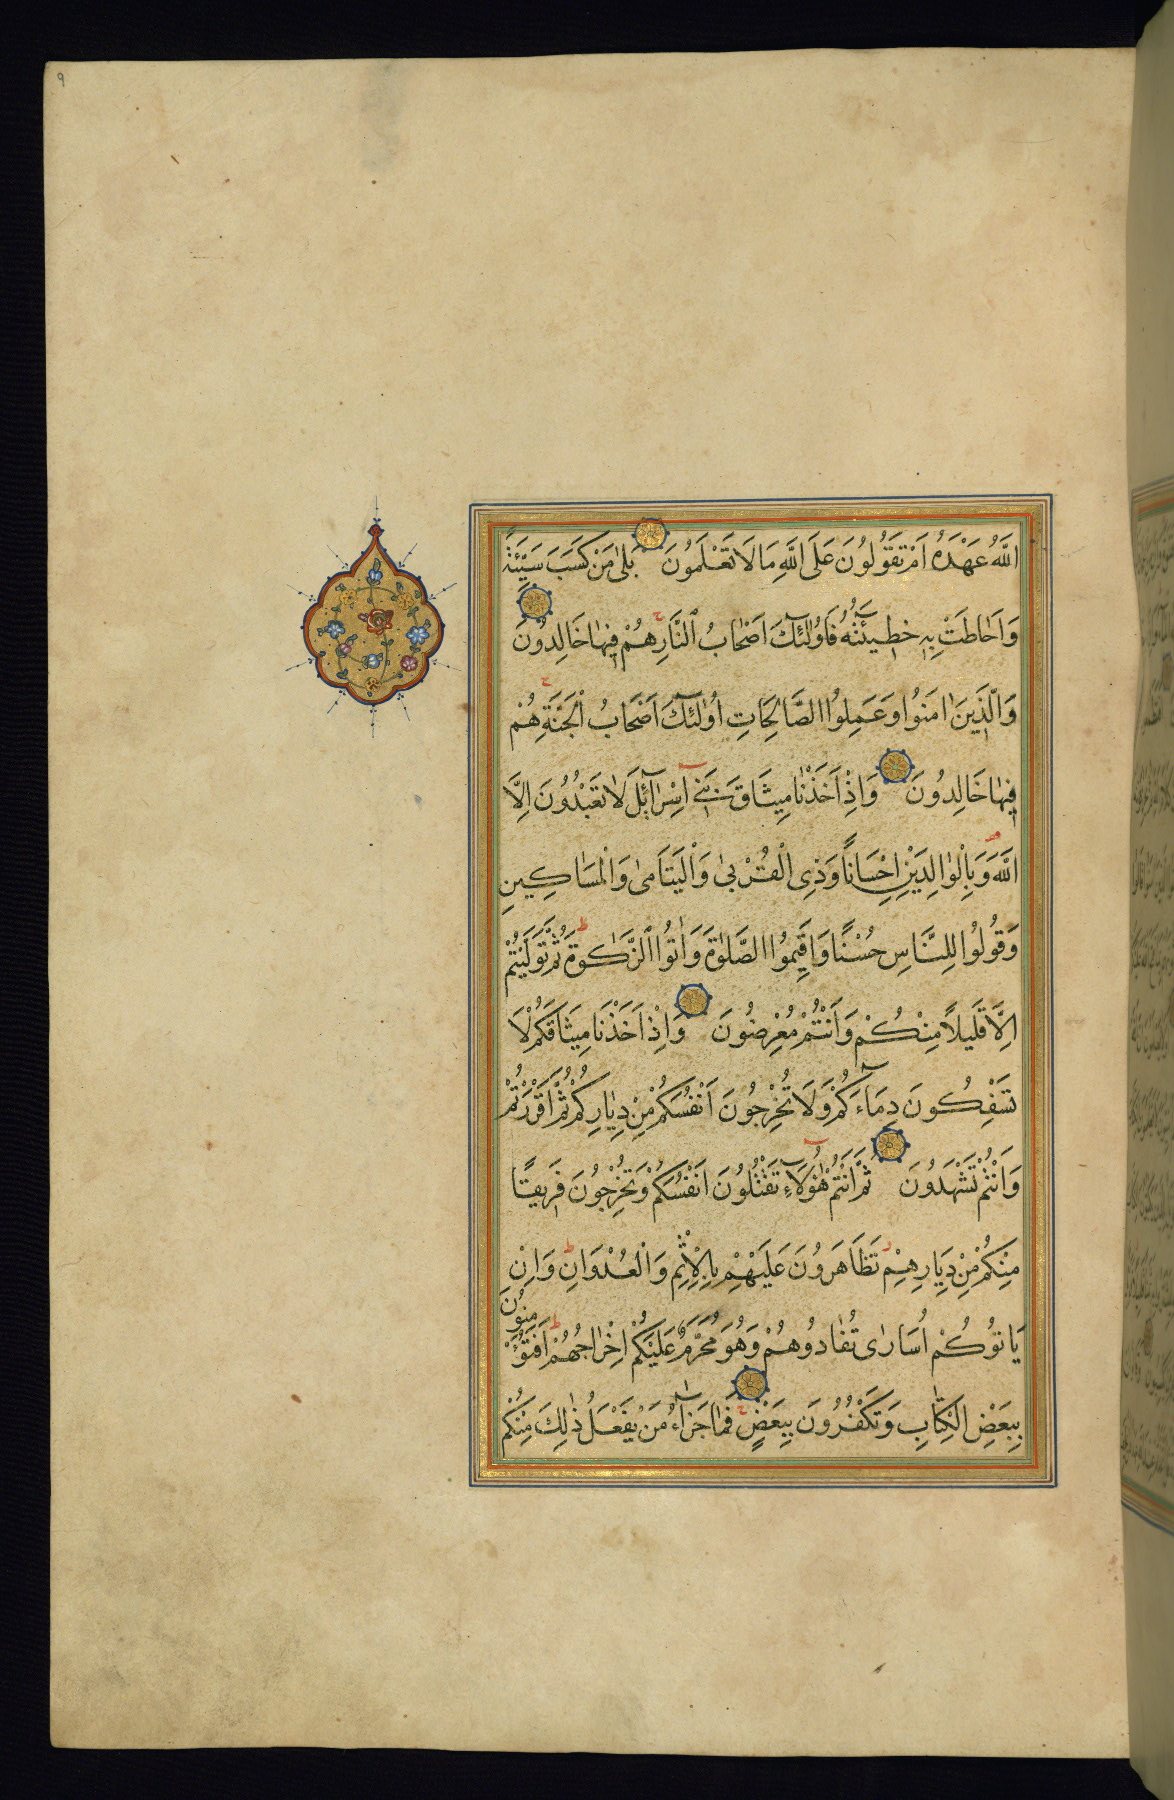 ۹
اللَّهُ عَهْدَهُ اَمْ تَقُولُونَ عَلَى اللَّهِ مَا لَا تَعْلَمُونَ بَلٰى مَنْ كَسَبَ سَيِّئَةً
وَاَحَاطَتْ بِهِ خَطِيئَتُهُ فَاُولٰئِكَ اَصْحَابُ النَّارِ هُمْ فِيهَا خَالِدُونَ
وَالَّذِينَ اٰمَنُوا وَعَمِلُوا الصَّالِحَاتِ اُولٰئِكَ اَصْحَابُ الْجَنَّةِ هُمْ
فِيهَا خَالِدُونَ وَاِذْ اَخَذْنَا مِيثَاقَ بَنِي اِسْرَآئِلَ لَا تَعْبُدُونَ اِلَّا
اللَّهَ وَبِالْوَالِدَيْنِ اِحْسَانًا وَذِي الْقُرْبىٰ وَالْيَتَامىٰ وَالْمَسَاكِينِ
وَقُولُوا لِلنَّاسِ حُسْنًا وَاَقِيمُوا الصَّلٰوةَ وَاٰتُوا الزَّكٰوةَ ثُمَّ تَوَلَّيْتُمْ
اِلَّا قَلِيلًا مِنْكُمْ وَاَنْتُمْ مُعْرِضُونَ وَاِذْ اَخَذْنَا مِيثَاقَكُمْ لَا
تَسْفِكُونَ دِمَآءَكُمْ وَلَا تُخْرِجُونَ اَنْفُسَكُمْ مِنْ دِيَارِكُمْ ثُمَّ اَقْرَرْتُمْ
وَاَنْتُمْ تَشْهَدُونَ ثُمَّ اَنْتُمْ هٰؤُلَآءِ تَقْتُلُونَ اَنْفُسَكُمْ وَتُخْرِجُونَ فَرِيقًا
مِنْكُمْ مِنْ دِيَارِهِمْ تَظَاهَرُونَ عَلَيْهِمْ بِالْاِثْمِ وَالْعُدْوَانِ وَاِنْ
يَاتُوكُمْ اُسَارٰى تُفَادُوهُمْ وَهُوَ مُحَرَّمٌ عَلَيْكُمْ اِخْرَاجُهُمْ اَفَتُؤْمِنُونَ
بِبَعْضِ الْكِتَابِ وَتَكْفُرُونَ بِبَعْضٍ فَمَا جَزَآءُ مَنْ يَفْعَلُ ذٰلِكَ مِنْكُمْ